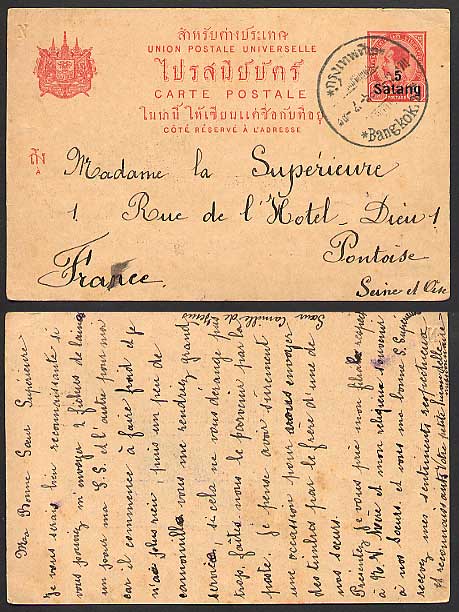 สำหรับต่างประเทศ
UNION POSTALE UNIVERSELLE
ไปรสนียบัตร์
CARTE POSTALE
ในน่านี้ ให้เขียนแต่ชื่อกับที่อยู่
CÔTÉ RÉSERVÉ À L'ADRESSE
5
Satang
กรุงเทพฯ
*Bangkok
ถึง
À
Madame la Supérieure
1 Rue de l'Hotel-Dieu 1
Pontoise
France
Seine et Oise
Sœur Camille de Jésus
Ma Bonne Sœur Supérieure
Je vous serais bien reconnaissante si
vous pouviez m'envoyer 2 fiches de laine
un pour ma S. S. et l'autre pour moi
car il commence à faire froid et je
n'ai plus rien puis un peu de
vous me rendriez grand
service, si cela ne vous dérange pas
trop, faites nous le parvenir par la
poste. Je pense avoir sûrement
une occasion pour vous envoyer
des timbres par le frère d'une de
nos sœurs.
Présentez je vous prie mon filial respect
à N. M. et mon religieux souvenir
à nos Sœurs, et vous ma bonne S. Supérieure
recevez mes sentiments respectueux
et reconnaissants Votre petite